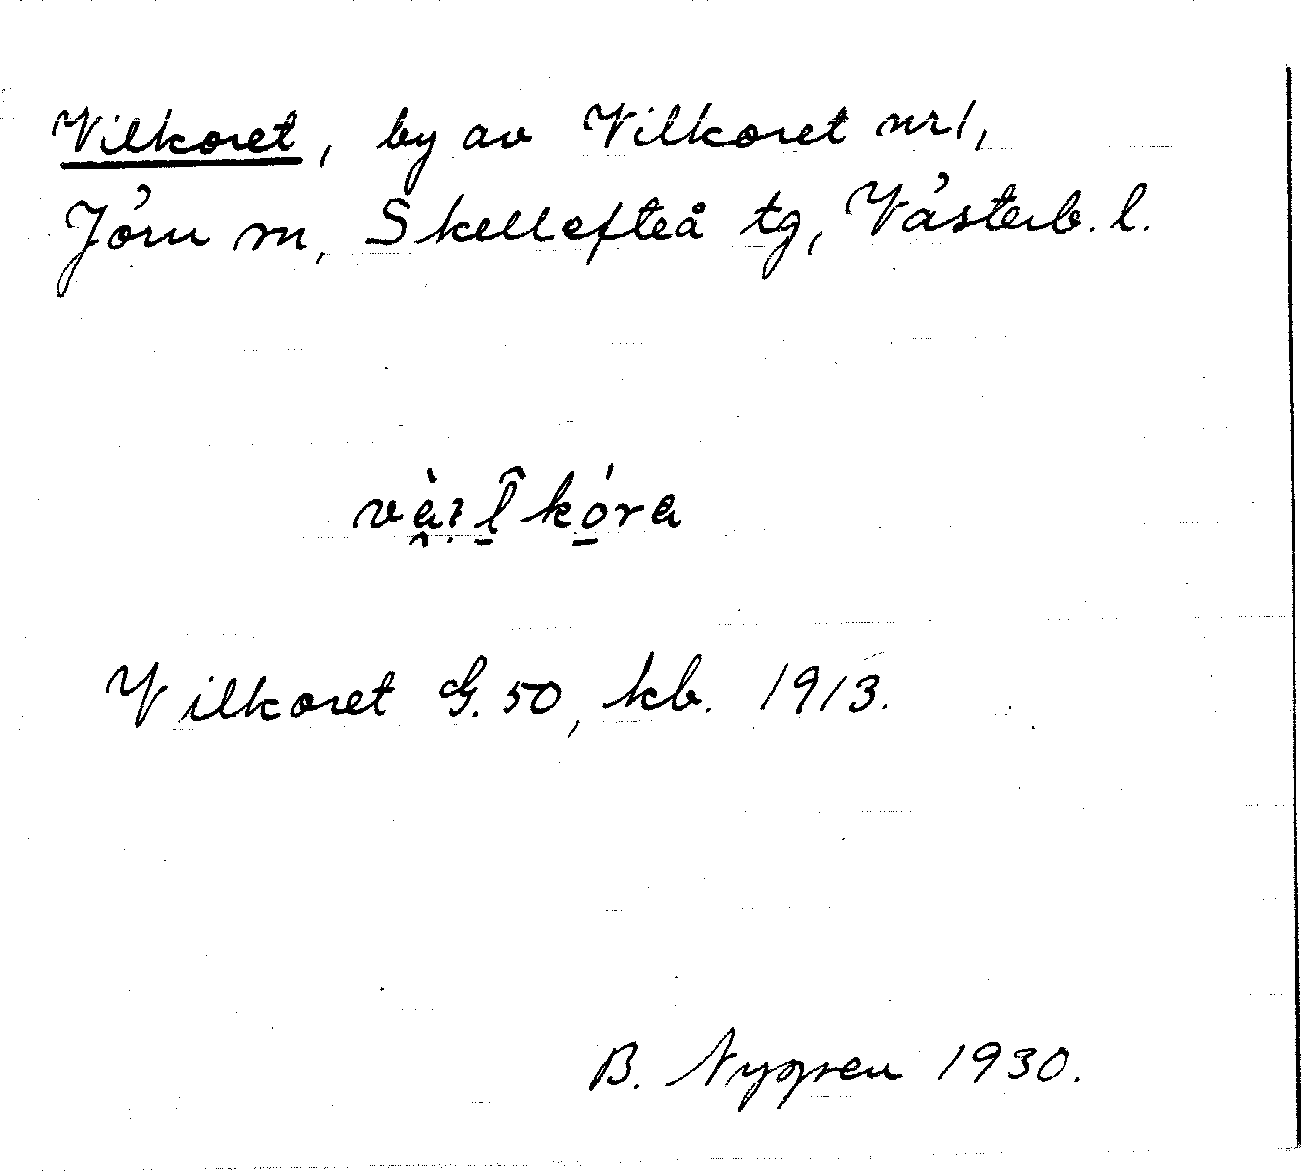 Vilkoret, by av Vilkoret nr 1,
Jörn sn, Skellefteå tg, Västerb. l.
Vilkoret G. 50, kb. 1913.
B. Nygren 1930.